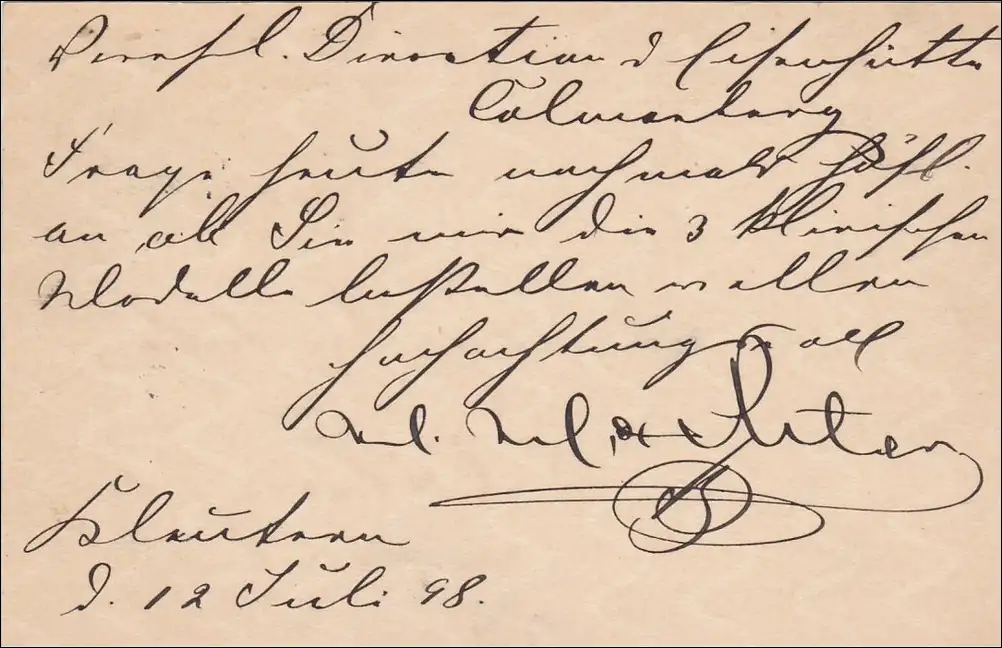 Direction d Eisenhütte
Colmenberg
Frage heute nochmals höfl.
an ob Sie mir die 3
Modelle bestellen wollen
Hochachtungsvoll
Kleutern
d. 12 Juli 98.